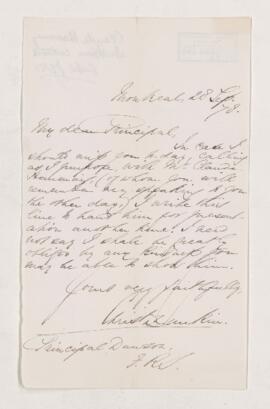 Montreal, 28 Sep.
/78.
My dear Principal,
In case I
should miss you to-day, calling
as I purpose, with Mr. Claude
Hemming, (of whom you will
remember my speaking to you
the other day,) I write this
line to hand him for present-
ation another time. I need
not say I shall be greatly
obliged by any kindness you
may be able to show him.
Yours very faithfully,
Christ Dunkin.
Principal Dawson,
F.R.S.